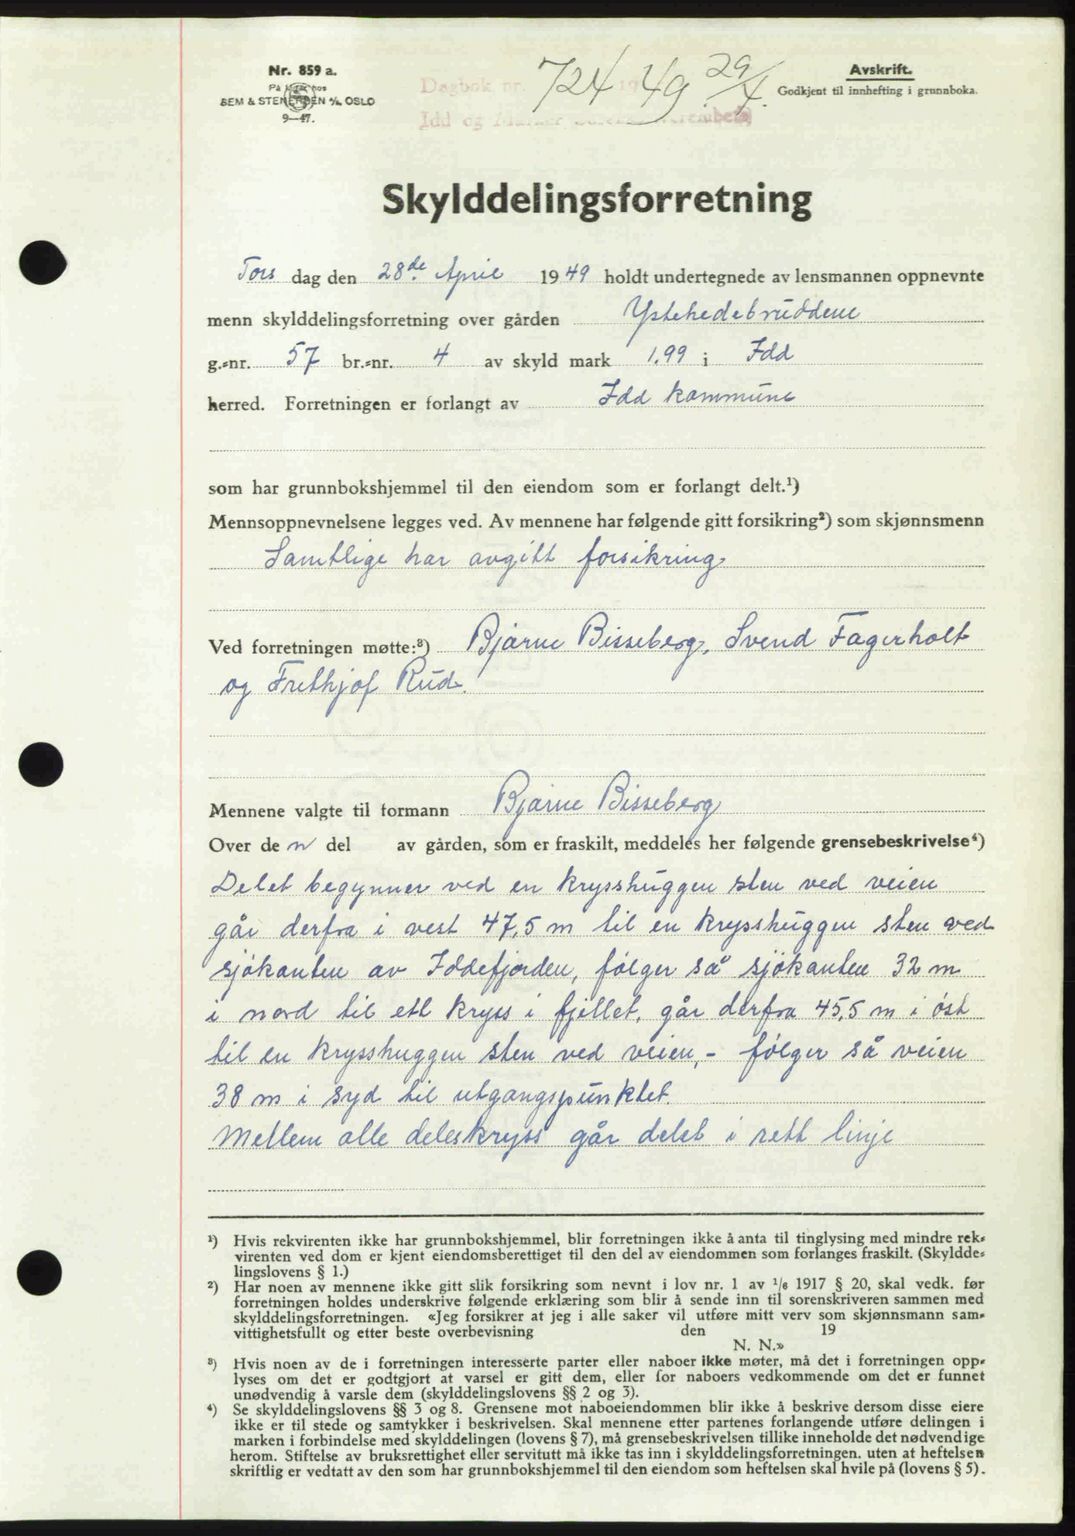 Nr. 859 a.
På lager hos
SEM & STENERSEN A/S, OSLO
9—47.
Dagbok nr. 724 19 49 29/4.
Idd og Marker sorenskriverembete
Avskrift.
Godkjent til innhefting i grunnboka.
Skylddelingsforretning
Tors dag den 28de April 1949 holdt undertegnede av lensmannen oppnevnte
menn skylddelingsforretning over gården Ystehedebruddene
g.=nr. 57 br.=nr. 4 av skyld mark 1.99 i Idd
herred. Forretningen er forlangt av Idd kommune
som har grunnbokshjemmel til den eiendom som er forlangt delt.¹)
Mennsoppnevnelsene legges ved. Av mennene har følgende gitt forsikring²) som skjønnsmenn
Samtlige har avgitt forsikring
Ved forretningen møtte:³) Bjarne Bisseberg, Svend Fagerholt
og Frithjof Rud.
Mennene valgte til formann Bjarne Bisseberg
Over de n del av gården, som er fraskilt, meddeles her følgende grensebeskrivelse⁴)
Delet begynner ved en krysshuggen sten ved veien
går derfra i vest 47,5 m til en krysshuggen sten ved
sjökanten av Iddefjorden, følger så sjökanten 32 m
i nord til ett kryss i fjellet, går derfra 45,5 m i öst
til en krysshuggen sten ved veien, – følger så veien
38 m i syd til utgangspunktet.
Mellem alle deleskryss går delet i rett linje
¹) Hvis rekvirenten ikke har grunnbokshjemmel, blir forretningen ikke å anta til tinglysing med mindre rek=
virenten ved dom er kjent eiendomsberettiget til den del av eiendommen som forlanges fraskilt. (Skyldde=
lingslovens § 1.)
²) Har noen av mennene ikke gitt slik forsikring som nevnt i lov nr. 1 av ¹/₆ 1917 § 20, skal vedk. før
forretningen holdes underskrive følgende erklæring som blir å sende inn til sorenskriveren sammen med
skylddelingsforretningen. «Jeg forsikrer at jeg i alle saker vil utføre mitt verv som skjønnsmann sam=
vittighetsfullt og etter beste overbevisning den 19
N. N.»
³) Hvis noen av de i forretningen interesserte parter eller naboer ikke møter, må det i forretningen opp=
lyses om det er godtgjort at varsel er gitt dem, eller for naboers vedkommende om det er funnet
unødvendig å varsle dem (skylddelingslovens §§ 2 og 3).
⁴) Se skylddelingslovens §§ 3 og 8. Grensene mot naboeiendommen blir ikke å beskrive dersom disse eiere
ikke er til stede og samtykker i beskrivelsen. Skal mennene etter partenes forlangende utføre delingen i
marken i forbindelse med skylddelingen (lovens § 7), må grensebeskrivelsen tillike inneholde det nødvendige
herom. Stiftelse av bruksrettighet eller servitutt må ikke tas inn i skylddelingsforretningen, uten at heftelsen
skriftlig er vedtatt av den som har grunnbokshjemmel til den eiendom som heftelsen skal hvile på (lovens § 5).